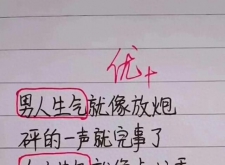 优+
男人生气就像放炮
砰的一声就完事了